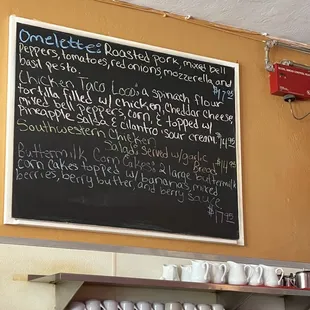 Omelette: Roasted pork, mixed bell
peppers, tomatoes, red onions mozzerella and
basil pesto. $17.95
Chicken Taco Loco: a spinach flour
tortilla filled w/ chicken, cheddar cheese,
mixed bell peppers, corn, & topped w/
pineapple salsa & cilantro sour cream. $14.95
Southwestern Chicken
Salad: Served w/garlic Bread $14.95
Buttermilk Corn Cakes: 2 large buttermilk
corn cakes topped w/ bananas, mixed
berries, berry butter, and berry sauce
$17.95